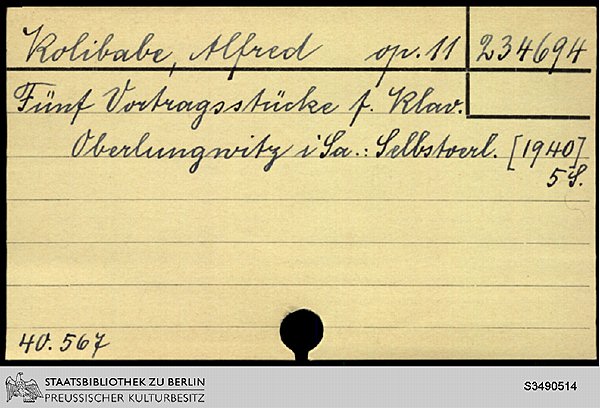 Kolibabe, Alfred op. 11 234694
Fünf Vortragsstücke f. Klav.
Oberlungwitz i Sa.: Selbstverl. [1940]
5 S.
40. 567
STAATSBIBLIOTHEK ZU BERLIN
PREUSSISCHER KULTURBESITZ
S3490514